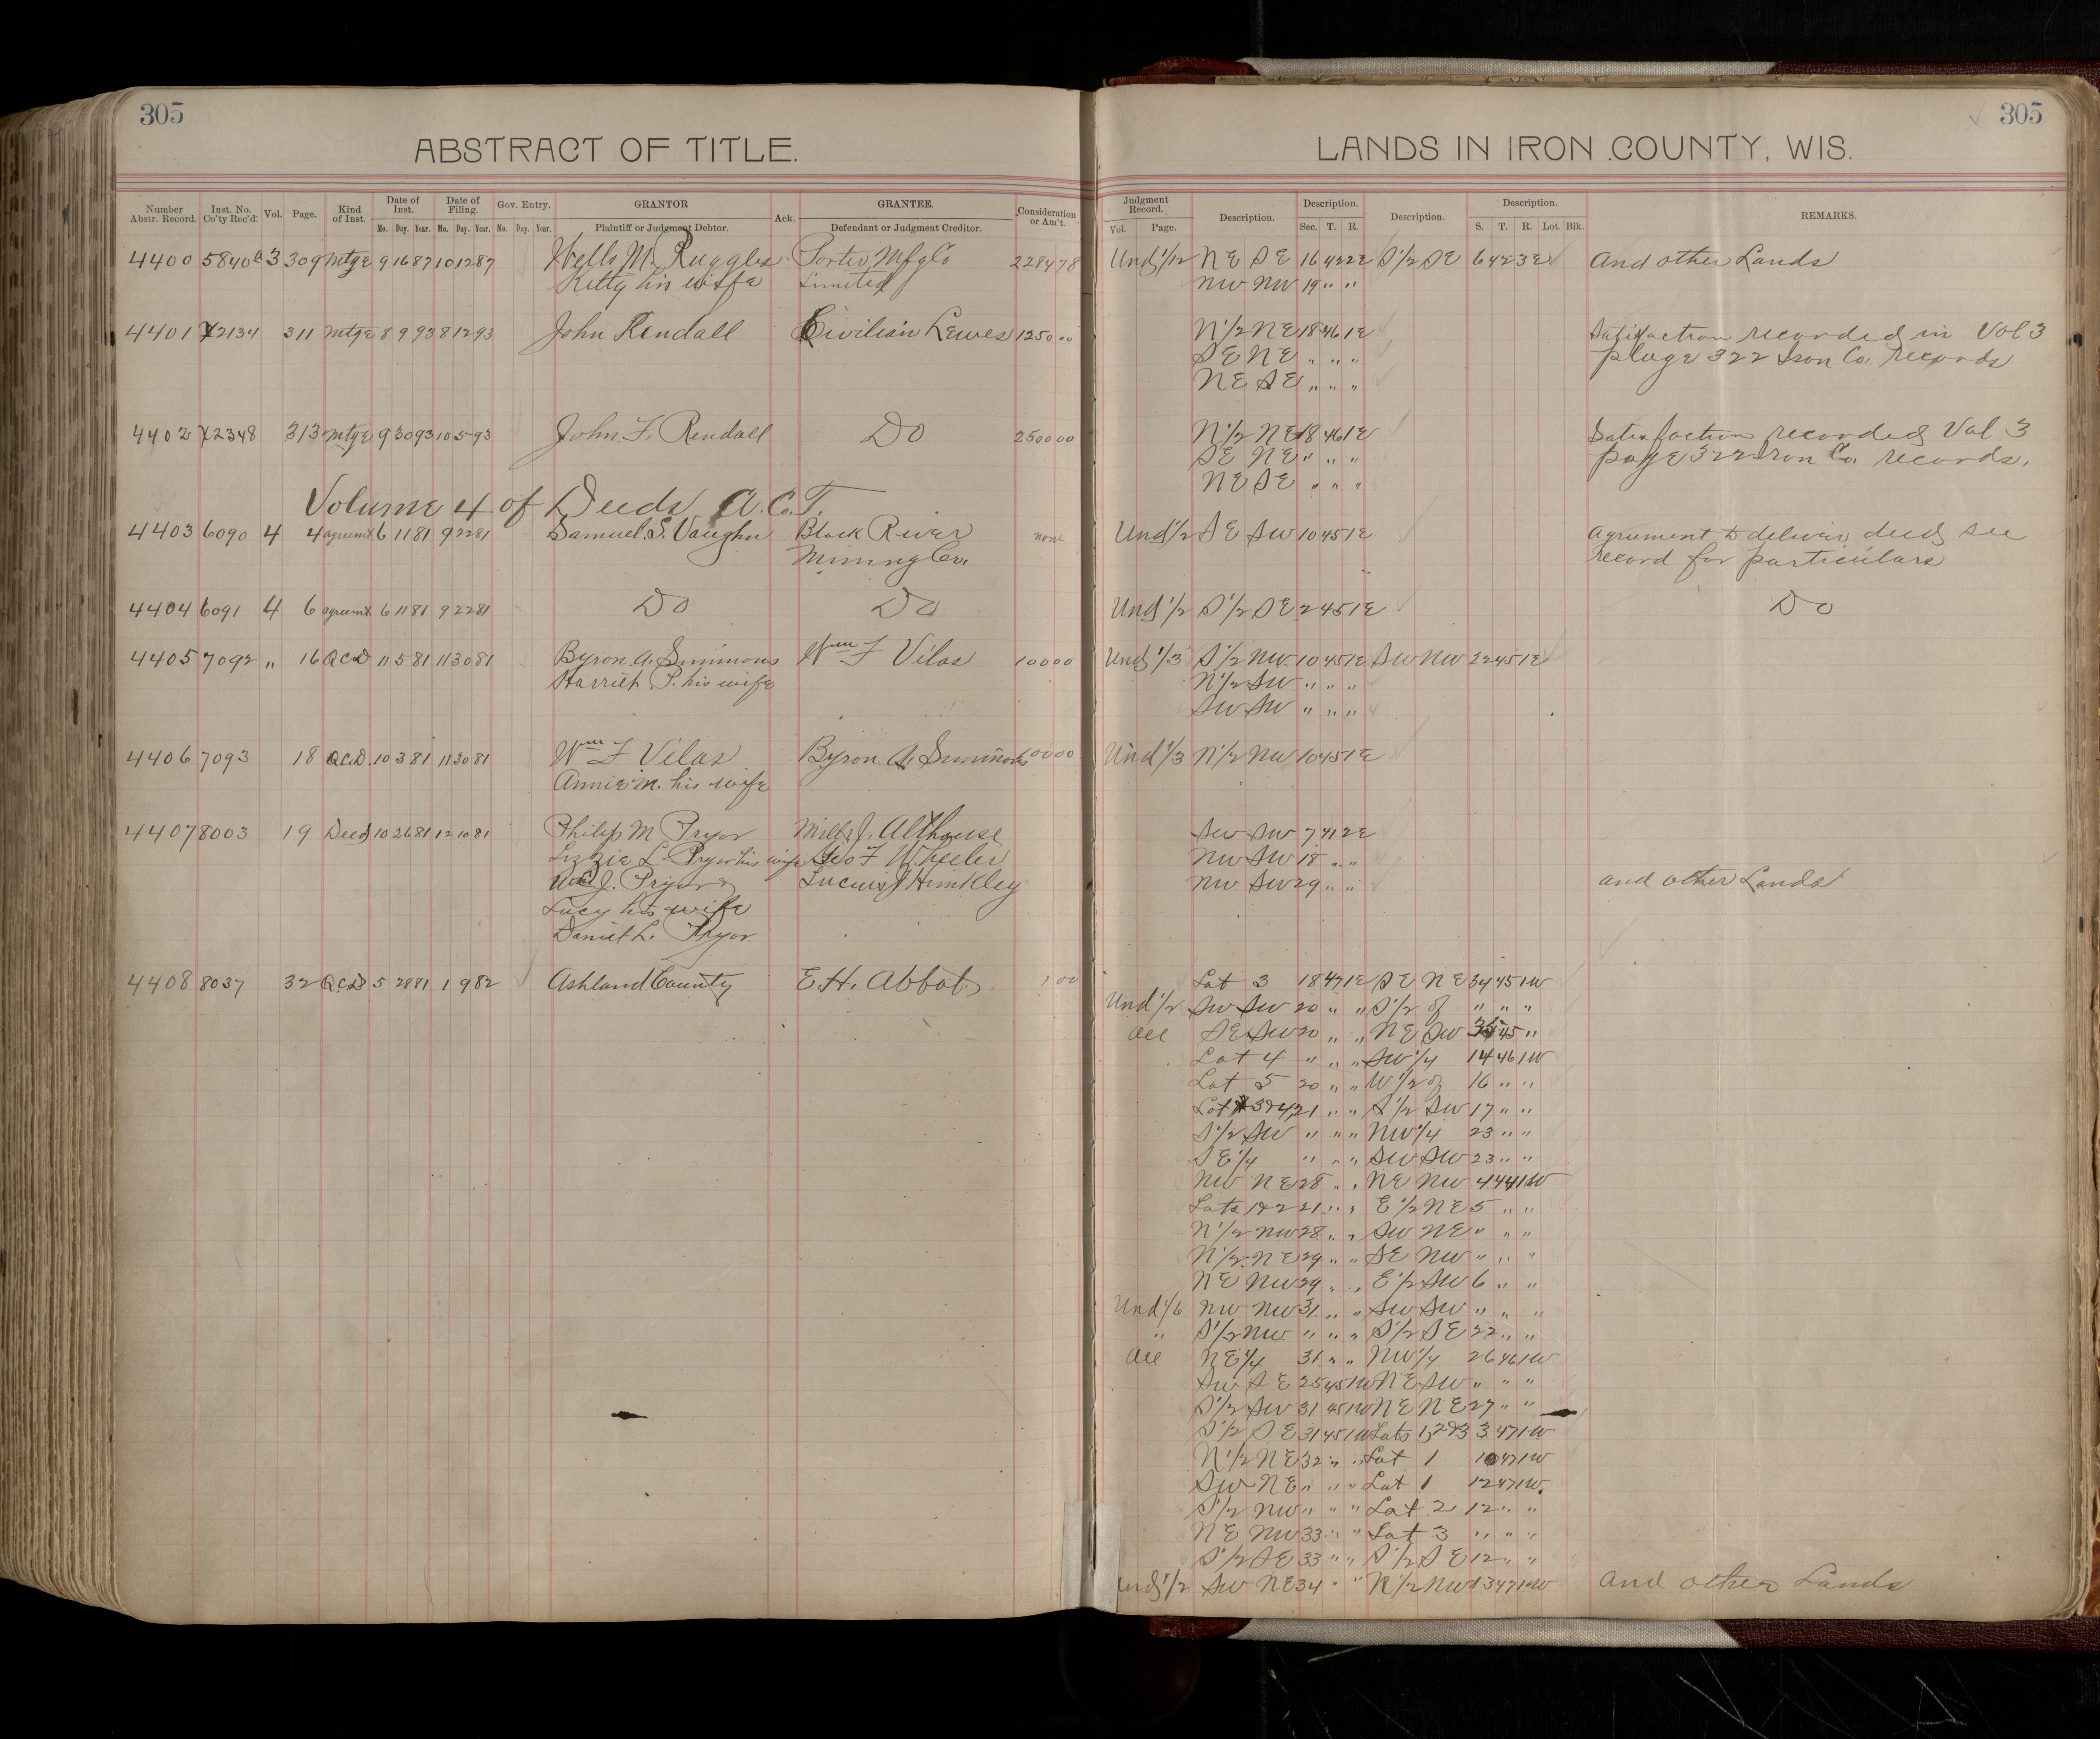 305
305
ABSTRACT OF TITLE.
LANDS IN IRON COUNTY, WIS.
Number Abstr. Record. Inst. No. Co'ty Rec'd. Vol. Page. Kind of Inst. Date of Inst. Date of Filing. Gov. Entry. GRANTOR Ack. GRANTEE. Consideration or Am't. Judgment Record. Description. Description. Description. Description. REMARKS.
Mo. Day. Year. Mo. Day. Year. Mo. Day. Year. Plaintiff or Judgment Debtor. Defendant or Judgment Creditor. Vol. Page. Sec. T. R. S. T. R. Lot. Blk.
4400 5840a 3 309 Mtge 9 16 87 10 12 87 Wells M. Ruggles Porter Mfg Co 2284 78 Und 1/12 NE SE 16 42 2E S 1/2 SE 6 42 3E And other Lands
Kitty his wife Limited NW NW 19 " "
4401 X2134 311 Mtge 8 9 93 8 12 93 John Rendall Civilian Lewes 1250 00 N 1/2 NE 18 46 1E Satisfaction recorded in Vol 3
SE NE " " " page 322 Iron Co. records
NE SE " " "
4402 X2348 313 Mtge 9 30 93 10 5 93 John F. Rendall Do 2500 00 N 1/2 NE 18 46 1E Satisfaction recorded Vol 3
SE NE " " " page 322 Iron Co. records.
NE SE " " "
Volume 4 of Deeds A.Co.T.
4403 6090 4 4 agreemt 6 11 81 9 22 81 Samuel S. Vaughn Black River none Und 1/2 SE SW 10 45 1E agrument to deliver deed see
Mining Co. record for particulars
4404 6091 4 6 agreemt 6 11 81 9 22 81 Do Do Und 1/2 S 1/2 SE 2 45 1E Do
4405 7092 " 16 QCD 11 5 81 11 30 81 Byron A. Simmons Wm F Vilas 100 00 Und 1/3 S 1/2 NW 10 45 1E SW NW 22 45 1E
Harriet P. his wife N 1/2 SW " " "
SW SW " " "
4406 7093 18 QCD. 10 3 81 11 30 81 Wm F Vilas Byron A. Simmons 100 00 Und 1/3 N 1/2 NW 10 45 1E
Annie M. his wife
4407 8003 19 Deed 10 26 81 12 10 81 Philip M Pryor Mills J. Althouse SW SW 7 41 2E
Lizzie L. Pryor his wife Geo F Wheeler NW SW 18 " "
J. Pryor & Lucius J Hinkley NW SW 29 " " and other Lands
Lucy his wife
Daniel L. Pryor
4408 8037 32 QCD 5 28 81 1 9 82 Ashland County E.H. Abbot 1 00 Lot 3 18 47 1E SE NE 34 45 1W
Und 1/2 SW SW 20 " " S 1/2 of " " "
all SE SW 20 " " NE SW 35 45 "
Lot 4 " " " SW 1/4 14 46 1W
Lot 5 20 " " W 1/2 of 16 " "
Lot 3 & 4 21 " " S 1/2 SW 17 " "
S 1/2 SW " " " NW 1/4 23 " "
SE 1/4 " " " SW SW 23 " "
NW NE 28 " " NE NW 4 44 1W
Lots 1 & 2 21 " " E 1/2 NE 5 " "
N 1/2 NW 28 " " SW NE " " "
N 1/2 NE 29 " " SE NW " " "
NE NW 29 " " E 1/2 SW 6 " "
Und 1/6 NW NW 31 " " SW SW " " "
" S 1/2 NW " " " S 1/2 SE 22 " "
all NE 1/4 31 " " NW 1/4 26 46 1W
SW SE 25 45 1W NE SW " " "
S 1/2 SW 31 45 1W NE NE 27 " "
S 1/2 SE 31 45 1W Lots 1, 2 & 3 3 47 1W
N 1/2 NE 32 " " Lot 1 10 47 1W
SW NE " " " Lot 1 12 47 1W.
S 1/2 NW " " " Lot 2 12 " "
NE NW 33 " " Lot 3 " " "
S 1/2 SE 33 " " S 1/2 SE 12 " "
Und 1/2 SW NE 34 " " N 1/2 NW 13 47 1W and other Lands